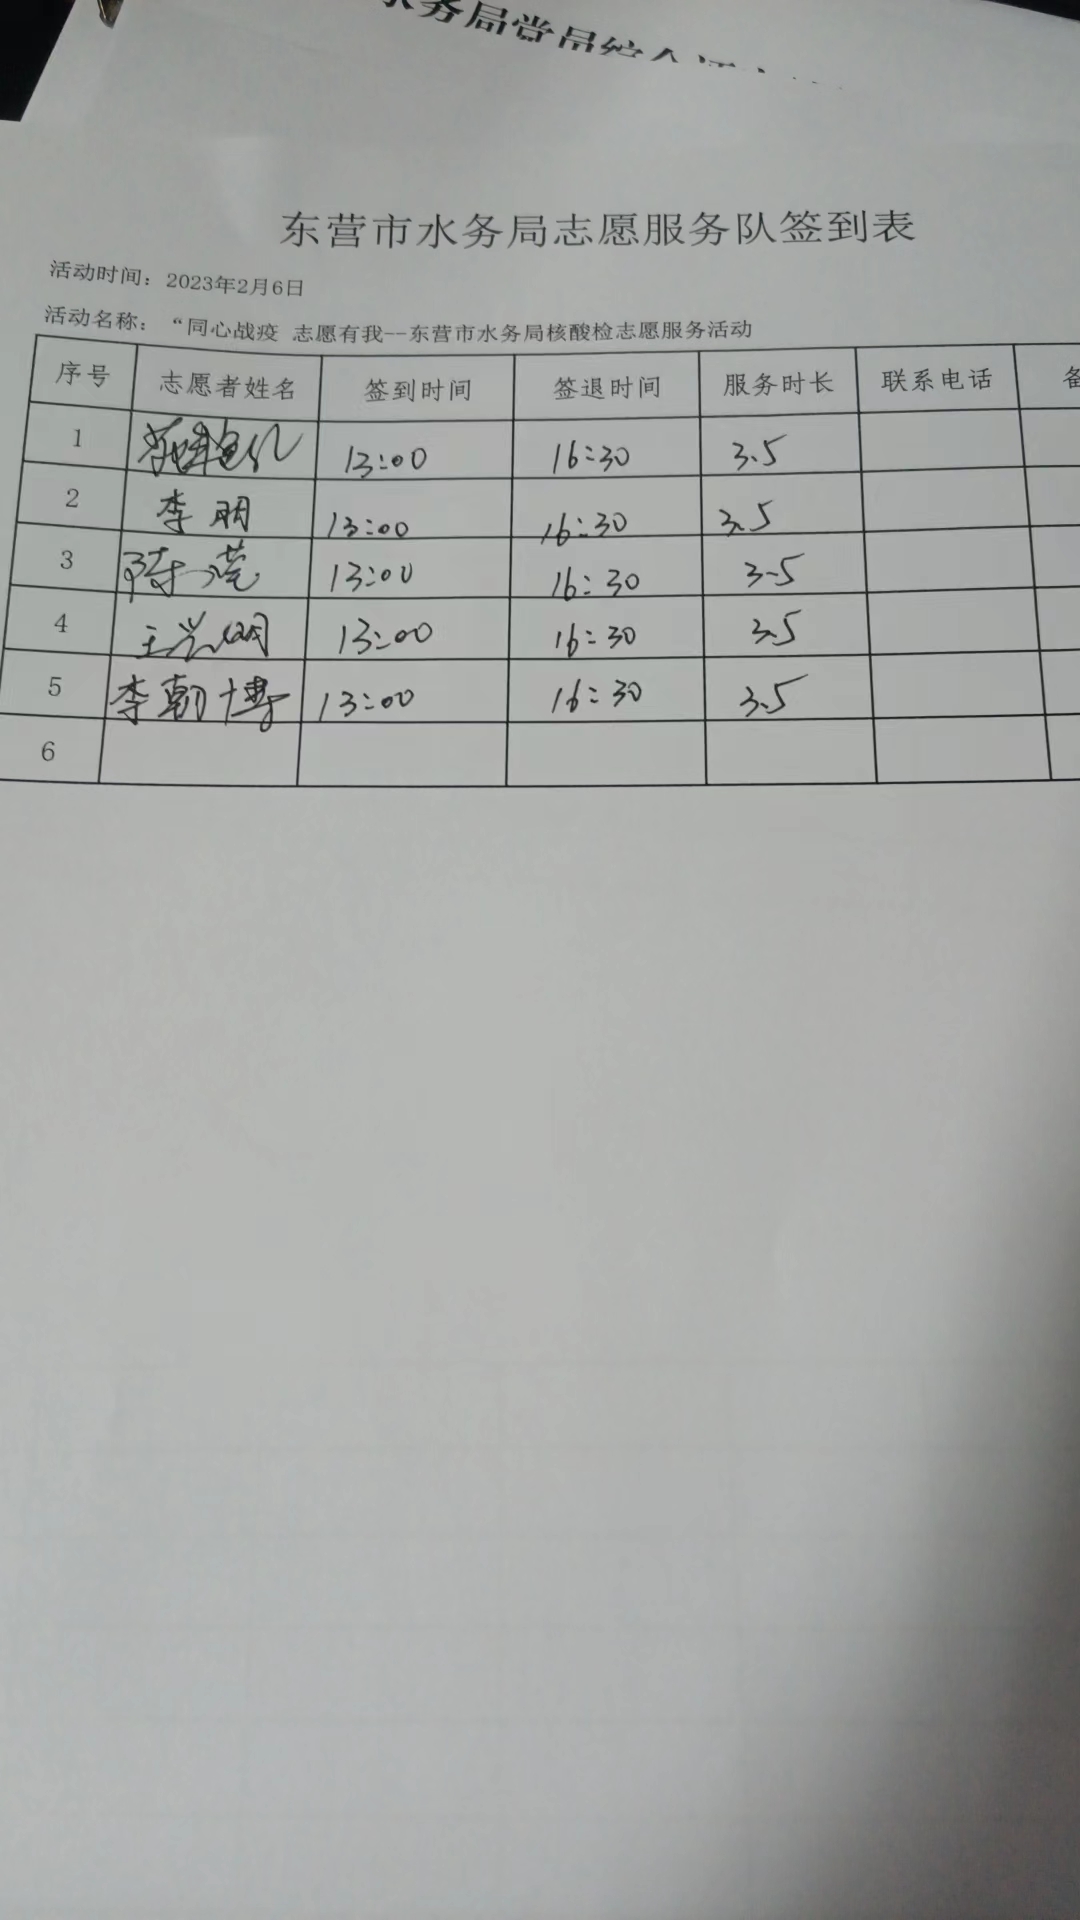 务局党员综合
东营市水务局志愿服务队签到表
活动时间：2023年2月6日
活动名称：“同心战疫 志愿有我--东营市水务局核酸检志愿服务活动
序号 志愿者姓名 签到时间 签退时间 服务时长 联系电话 备
1 13:00 16:30 3.5
2 李明 13:00 16:30 3.5
3 陈莹 13:00 16:30 3.5
4 王兴明 13:00 16:30 3.5
5 李朝博 13:00 16:30 3.5
6